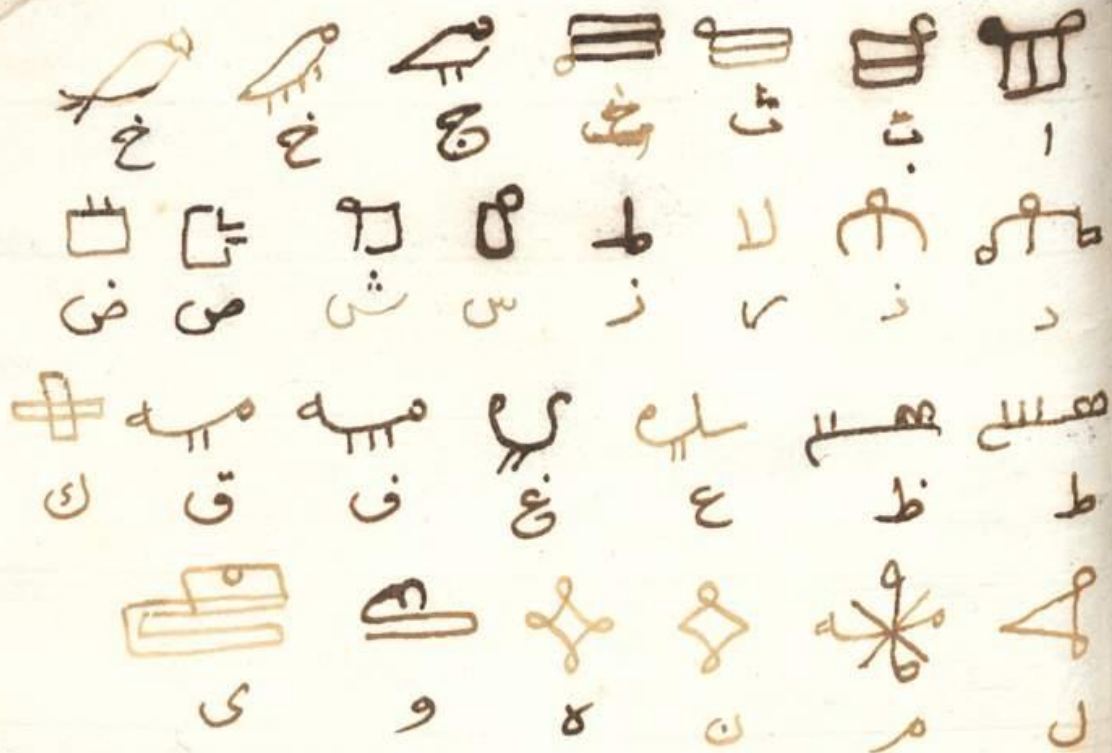 ا ث ج خ خ
د ذ ر ز س ش ص ض
ط ظ ع غ ف ق ك
ل م ن ه و ى